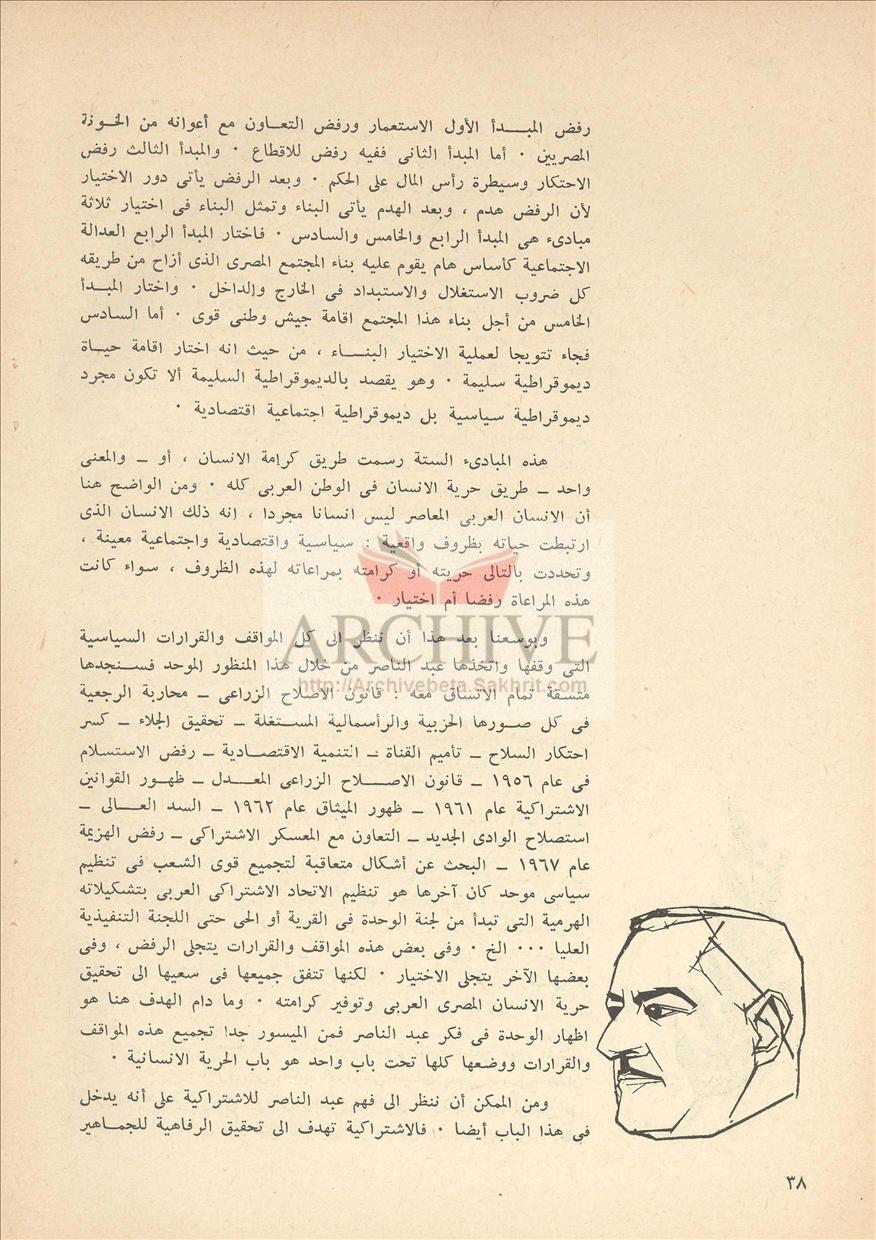 رفض المبـــدأ الأول الاستعمار ورفض التعـاون مع أعوانه من الخـونة
المصريين ٠ أما المبدأ الثانى ففيه رفض للاقطاع ٠ والمبدأ الثالث رفض
الاحتكار وسيطرة رأس المال على الحكم ٠ وبعد الرفض يأتى دور الاختيار
لأن الرفض هدم ، وبعد الهدم يأتى البناء وتمثل البناء فى اختيار ثلاثة
مبادىء هى المبدأ الرابع والخامس والسادس ٠ فاختار المبدأ الرابع العدالة
الاجتماعية كأساس هام يقوم عليه بناء المجتمع المصرى الذى أزاح من طريقه
كل ضروب الاستغلال والاستبداد فى الخارج والداخل ٠ واختار المبـدأ
الخامس من أجل بناء هذا المجتمع اقامة جيش وطنى قوى ٠ أما السادس
فجاء تتويجا لعملية الاختيار البنـــاء ، من حيث انه اختار اقامة حيـاة
ديموقراطية سليمة ٠ وهو يقصد بالديموقراطية السليمة ألا تكون مجرد
ديموقراطية سياسية بل ديموقراطية اجتماعية اقتصادية ٠
هذه المبادىء الستة رسمت طريق كرامة الانسان ، أو ــ والمعنى
واحد ــ طريق حرية الانسان فى الوطن العربى كله ٠ ومن الواضح هنا
أن الانسان العربى المعاصر ليس انسانا مجردا ، انه ذلك الانسان الذى
ارتبطت حياته بظروف واقعية : سياسية واقتصادية واجتماعية معينة ،
وتحددت بالتالى حريته أو كرامته بمراعاته لهذه الظروف ، سواء كانت
هذه المراعاة رفضا أم اختيار ٠
وبوسعنا بعد هذا أن ننظر الى كل المواقف والقرارات السياسية
التى وقفها واتخذها عبد الناصر من خلال هذا المنظور الموحد فسـنجدها
متسقة تمام الاتساق معه : قانون الاصلاح الزراعى ــ محاربة الرجعية
فى كل صـورها الحزبية والرأسمالية المسـتغلة ــ تحقيق الجلاء ــ كسر
احتكار السلاح ــ تأميم القناة ــ التنمية الاقتصـادية ــ رفض الاستسلام
فى عام ١٩٥٦ ــ قانون الاصــلاح الزراعى المعـدل ــ ظهـور القوانين
الاشتراكية عام ١٩٦١ ــ ظهور الميثاق عام ١٩٦٢ ــ السد العـالى ــ
استصلاح الوادى الجديد ــ التعاون مع المعسكر الاشتراكى ــ رفض الهزيمة
عام ١٩٦٧ ــ البحث عن أشكال متعاقبة لتجميع قوى الشعب فى تنظيم
سياسى موحد كان آخرها هو تنظيم الاتحاد الاشتراكى العربى بتشكيلاته
الهرمية التى تبدأ من لجنة الوحدة فى القرية أو الحى حتى اللجنة التنفيذية
العليا ٠٠٠ الخ ٠ وفى بعض هذه المواقف والقرارات يتجلى الرفض ، وفى
بعضها الآخر يتجلى الاختيار ٠ لكنها تتفق جميعها فى سعيها الى تحقيق
حرية الانسان المصرى العربى وتوفير كرامته ٠ وما دام الهدف هنا هو
اظهار الوحدة فى فكر عبد الناصر فمن الميسور جدا تجميع هذه المواقف
والقرارات ووضعها كلها تحت باب واحد هو باب الحرية الانسانية ٠
ومن الممكن أن ننظر الى فهم عبد الناصر للاشتراكية على أنه يدخل
فى هذا الباب أيضا ٠ فالاشتراكية تهدف الى تحقيق الرفاهية للجمـاهير
٣٨
ARCHIVE
http://Archivebeta.Sakhrit.com